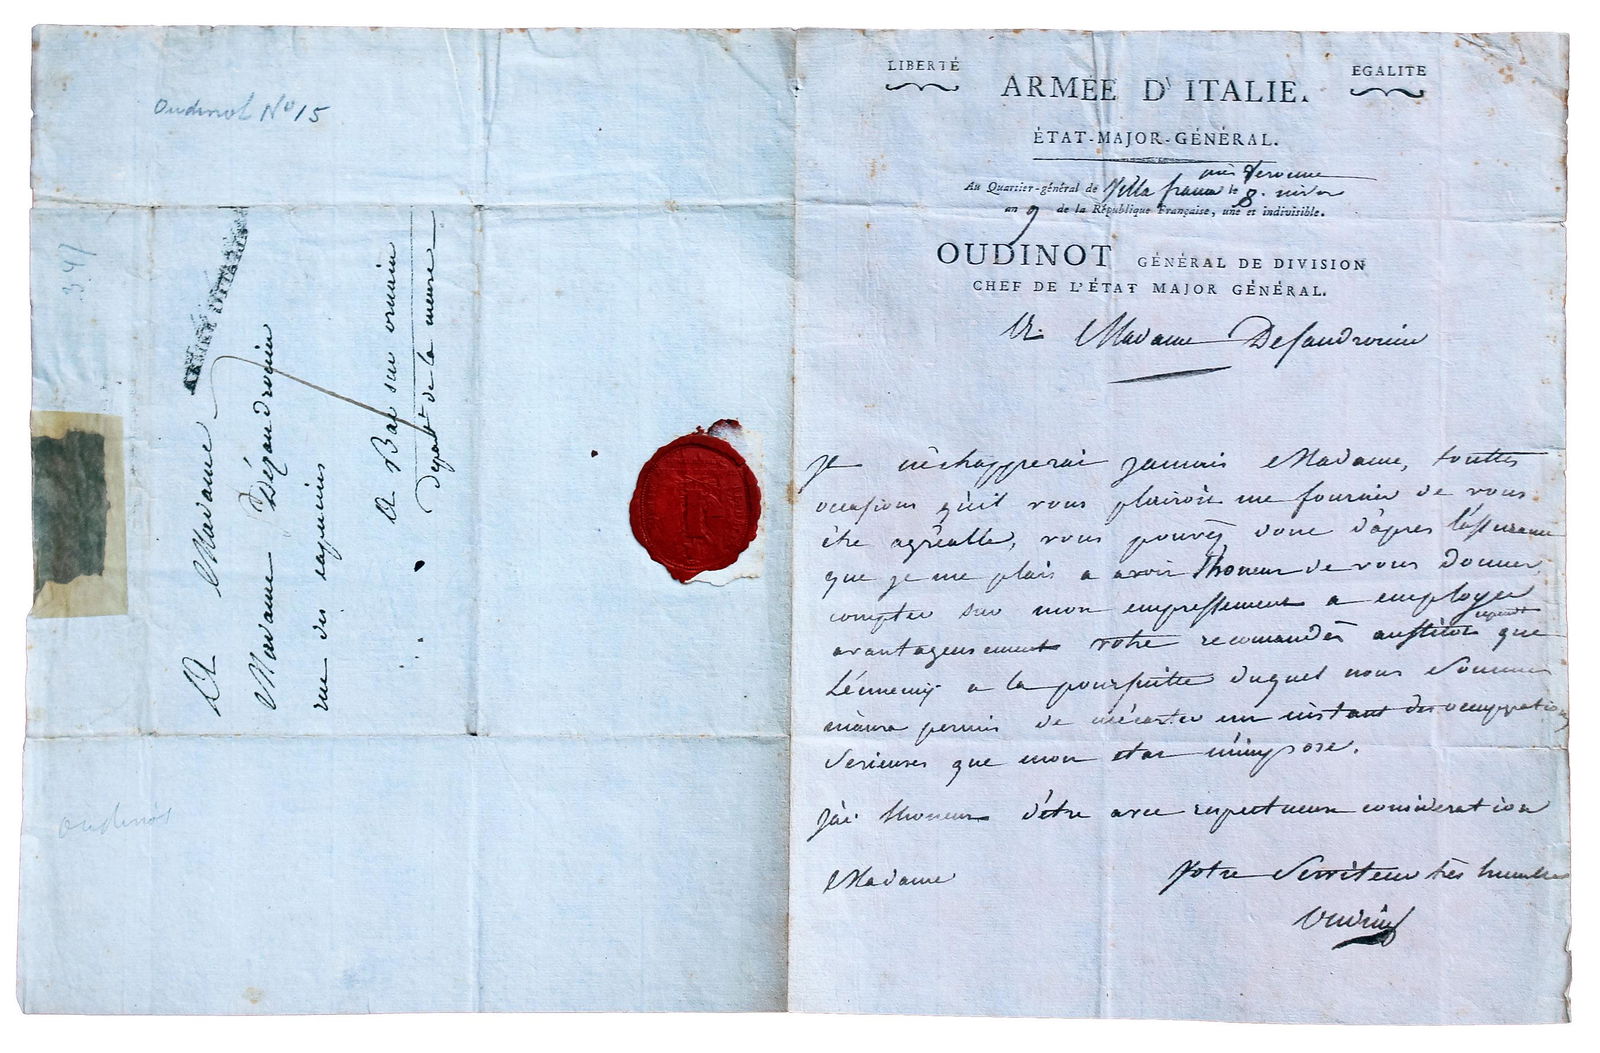 Oudinot No 15
3.47
ARMÉE D'ITALIE
A Madame
Madame Dézandroüin
rue des capucins
A Bar sur ornain
Depart de la meuse
Oudinot
LIBERTÉ
EGALITE
ARMÉE D'ITALIE.
ÉTAT-MAJOR-GÉNÉRAL.
près Veronne
Au Quartier-général de Villa franca le 8. nivos
an 9 de la République Française, une et indivisible.
OUDINOT GÉNÉRAL DE DIVISION
CHEF DE L'ÉTAT MAJOR GÉNÉRAL.
A. Madame Desandrouin
je n'échapperai jamais Madame, touttes
occasions qu'il vous plairoit me fournir de vous
être agréable, vous pouvéz donc d'après l'assurance
que je me plais a avoir l'honeur de vous donner,
compter sur mon empressement a employer
avantageusement votre recomandés aussitot que
L'énnemy a la poursuitte duquel nous Sommes
m'aura permis de m'écarter un instant des occuppations
Serieuses que mon etat m'impose.
j'ai l'honeur d'étre avec respectueuse consideration
Madame
Votre Serviteur très humble
Oudinot